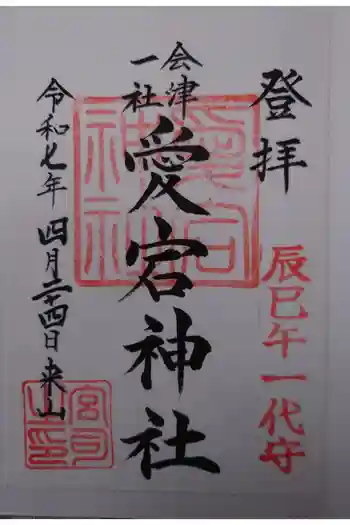 登拝
辰巳午一代守
会津
一社
愛宕神社
令和七年四月二十四日来山
愛宕神社
宮司之印